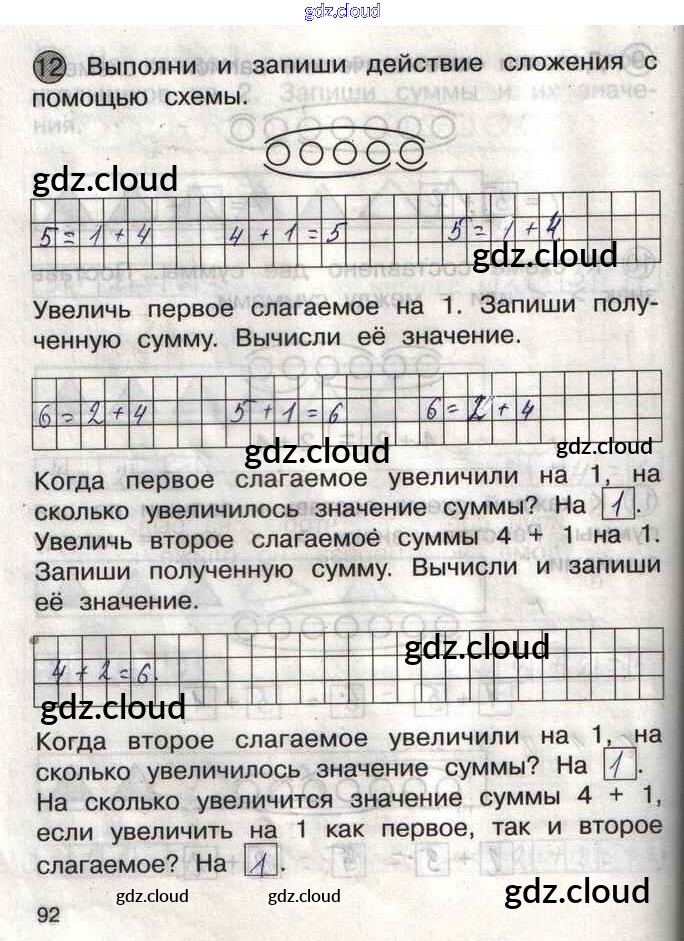 gdz.cloud
12 Выполни и запиши действие сложения с
помощью схемы.
gdz.cloud
5 = 1 + 4 4 + 1 = 5 5 = 1 + 4
gdz.cloud
Увеличь первое слагаемое на 1. Запиши полу-
ченную сумму. Вычисли её значение.
6 = 2 + 4 5 + 1 = 6 6 = 2 + 4
gdz.cloud gdz.cloud
Когда первое слагаемое увеличили на 1, на
сколько увеличилось значение суммы? На 1.
Увеличь второе слагаемое суммы 4 + 1 на 1.
Запиши полученную сумму. Вычисли и запиши
её значение.
gdz.cloud
4 + 2 = 6.
gdz.cloud
Когда второе слагаемое увеличили на 1, на
сколько увеличилось значение суммы? На 1.
На сколько увеличится значение суммы 4 + 1,
если увеличить на 1 как первое, так и второе
слагаемое? На 1.
gdz.cloud gdz.cloud gdz.cloud
92